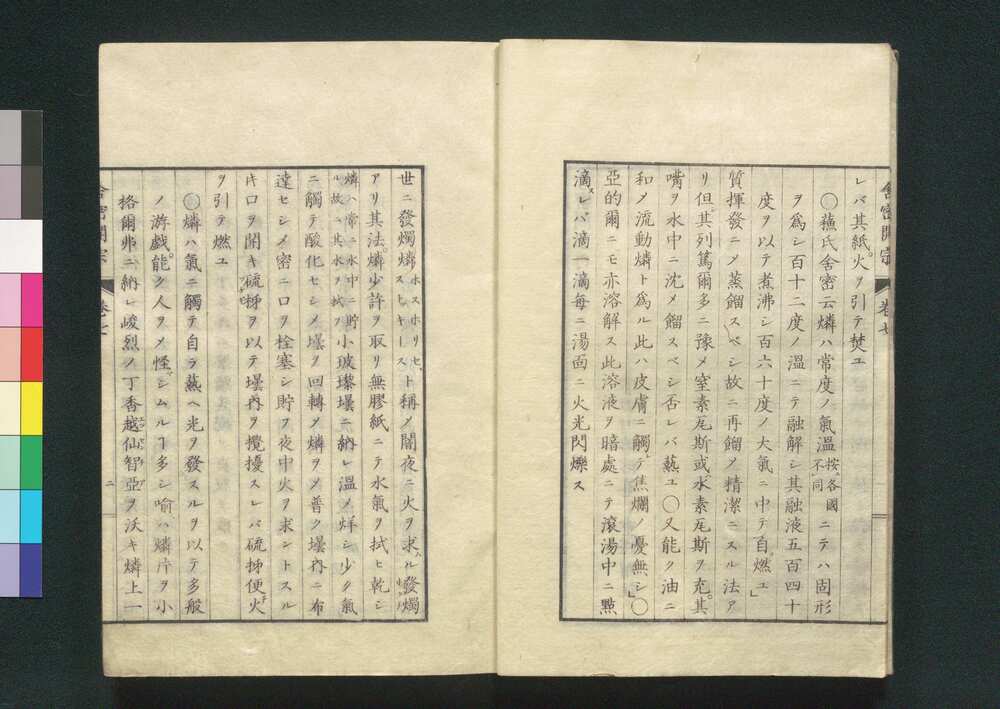 舍密開宗
卷七
レバ其紙火ヲ引テ焚ユ
○蘓氏舍密云燐ハ常度ノ氣温按各國不同ニテハ固形
ヲ爲シ百十二度ノ温ニテ融解シ其融液五百四十
度ヲ以テ煮沸シ百六十度ノ大氣ニ中テ自燃ユ」
質揮發ニメ蒸餾スベシ故ニ再餾メ精潔ニスル法ア
リ但其列篤爾多ニ豫メ窒素瓦斯或水素瓦斯ヲ充其
嘴ヲ水中ニ沈メ餾スベシ否レバ爇ユ○又能ク油ニ
和メ流動燐ト爲ル此ハ皮膚ニ觸テ焦爛ノ憂無シ」○
亞的爾ニモ亦溶解ス此溶液ヲ暗處ニテ滾湯中ニ點
滴スレバ滴一滴毎ニ湯面ニ火光閃爍ス
世ニ發燭燐ホスホリセ、ストキーストト稱メ闇夜ニ火ヲ求ハル發燭
アリ其法燐少許ヲ取リ無膠紙ニテ水氣ヲ拭ヒ乾シ
燐ハ常ニ水中ニ貯ル故ニ其水ヲ拭フ小玻瓈壜ニ納レ温メ烊シ少ク氣
ニ觸テ酸化セシメ壜ヲ回轉メ燐ヲメ普ク壜内ニ布
達セシメ密ニ口ヲ栓塞シ貯フ夜中火ヲ求ントスル
キ口ヲ開キ硫㧞ヲ以テ壜内ヲ攪擾スレバ硫㧞便火
ヲ引テ燃ユ
○燐ハ氣ニ觸テ自ラ爇ヘ光ヲ發スルヲ以テ多般
ノ游戲能ク人ヲメ怪シムルヿ多シ喩ハ燐片ヲ小
格爾弗ニ納レ峻烈ノ丁香越仙智亞ヲ沃キ燐上一
舍密開宗
卷七
二